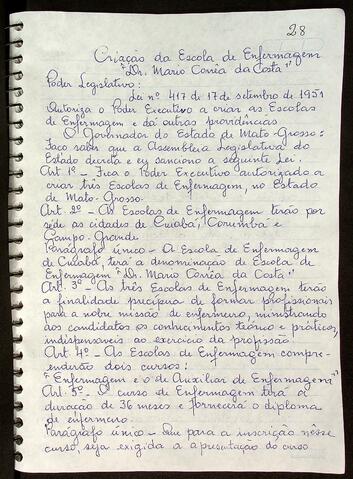 28
Criação da Escola de Enfermagem
"Dr. Mario Corrêa da Costa"
Poder Legislativo:
Lei nº 417 de 17 de setembro de 1951
Autoriza o Poder Executivo a criar as Escolas
de Enfermagem e dá outras providências
O Governador do Estado de Mato-Grosso:
Faço saber que a Assembléia Legislativa do
Estado decreta e eu sanciono a seguinte Lei.
Art 1º - Fica o Poder Executivo autorizado a
criar três Escolas de Enfermagem, no Estado
de Mato-Grosso.
Art. 2º - As Escolas de Enfermagem terão por
séde as cidades de Cuiabá, Corumbá e
Campo-Grande.
Parágrafo único - A Escola de Enfermagem
de Cuiabá, terá a denominação de Escola de
Enfermagem "Dr. Mario Corrêa da Costa."
Art. 3º - As três Escolas de Enfermagem terão
a finalidade precípua de formar profissionais
para a nobre missão de enfermeiro, ministrando
aos candidatos os conhecimentos teórico e práticos,
indispensaveis ao exercício da profissão.
Art. 4º - As Escolas de Enfermagem compre-
enderão dois cursos:
"Enfermagem e o de Auxiliar de Enfermagem"
Art. 5º - O curso de Enfermagem terá a
duração de 36 meses e fornecerá o diploma
de enfermeiro.
Parágrafo único - Que para a inscrição nêsse
curso, seja exigida a apresentação do curso